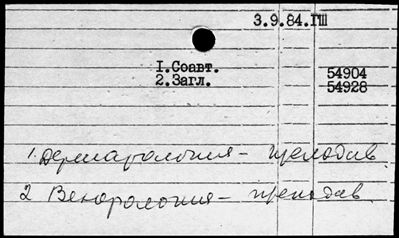 3.9.84.ГШ
I.Соавт.
2.Загл.
54904
54928
1. Дерматология – преподав.
2 Венерология – преподав.